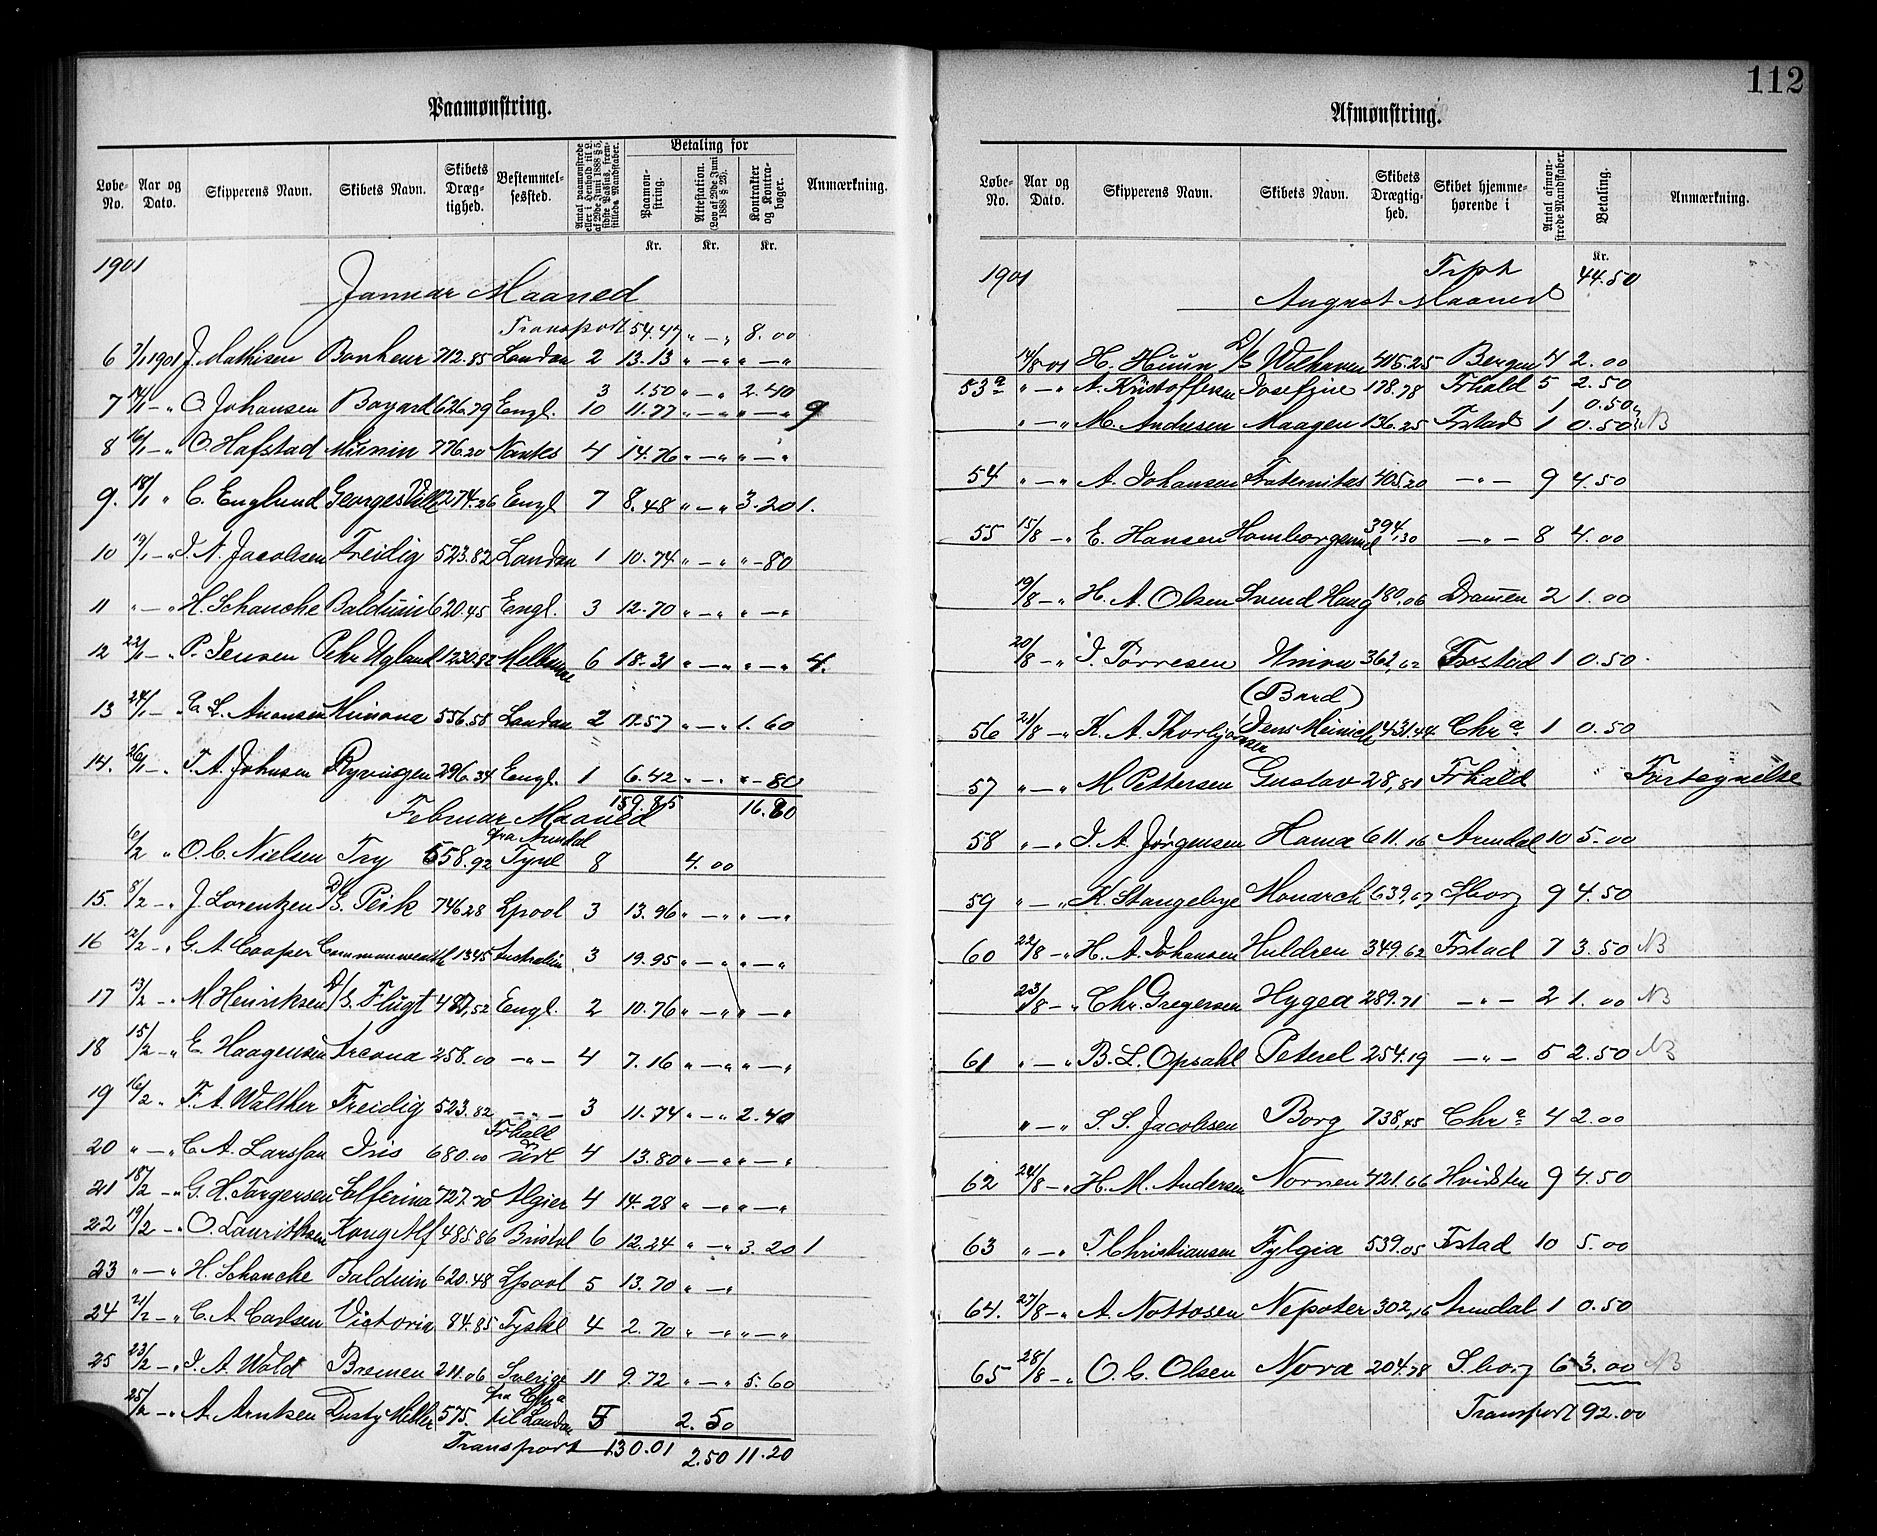 112
Paamønstring.
Løbe-No. Aar og Dato. Skipperens Navn. Skibets Navn. Skibets Dræg-tighed. Bestemmel-sessted. Antal paamønstrede eller i Henhold til L. af 29de Juni 1888 § 5, sidste Passus, frem-stillede Mandskaber. Betaling for Paamøn-string. Attestation. (Lov af 29de Juni 1888 § 23). Kontrakter og Kontra-bøger. Anmærkning.
Kr. Kr. Kr.
1901
Januar Maaned
Transport 54.47 " — " 8.00
6 7/1 1901 J. Mathisen Bonheur 712.85 London 2 13.13 " — " " — "
3 1.50 " — " 2.40
7 14/1 — " O. Johansen Bayard 626.79 Engl. 10 11.77 " — " " — " 9
8 16/1 — " O. Hafstad Munin 776.20 Nantes 4 14.76 " — " " — "
9. 18/1 " C. Englund Georges Valk 274.26 Engl 7 8.48 " — " 3.20 1.
10 19/1 — " J. A. Jacobsen Freidig 523.82 London 1 10.74 " — " " - 80
11 " — " H. Schanche Balduin 620.45 Engl. 3 12.70 " — " " — "
12 22/1 — " P. Jensen Pehr Ugland 1230.82 Melbourne 6 18.31 " — " " — " 4.
13 24/1 — L. Anonsen Mimona 556.58 London 2 12.57 " — " 1.60
14. 26/1 — " T. A. Johnsen Ryvingen 296.34 Engl. 1 6.42 " — " " - 80
159.85 16.80
Februar Maaned
6/2 " O. C. Nielsen Try 558.92 fra Arendal Tyne 8 4.00
15. 8/2 — " J. Lorentzen D/S. Peik 746.28 Lpool 3 13.96 " — " " — "
16 12/2 — " G. A. Cooper Commonwealth 1345 Australien 3 19.95 " — " " — "
17 13/2 — " M Henriksen D/S. Flugt 487,52 Engl. 2 10.76 " — " " — "
18 15/2 — " E. Haagensen Arcona 258.00 — " — 4 7.16 " — " " — "
19 16/2 " F. A. Walther Freidig 523.82 — " — 3 11.74 " — " 2.40
20 " — " C. A. Larsson Iris 680.00 Frhald 4 13.80 " — " " — "
21 18/2 — " G. H. Torgersen Solferina 727.70 Algier 4 14.28 " — " " — "
22 19/2 — " O. Lauritsen Kong Alf 485.86 Bristol 6 12.24 " — " 3.20 1
23 " — " H. Schanche Balduin 620.48 Lpool 5 13.70 " — "
24 21/2 — " C. A. Carlsen Victoria 84.85 Tyskl 4 2.70 " — " " — "
25 23/2 — " J. A. Wold Bremen 211.06 Sverige 11 9.72 " — " 5.60
25/2 — " A. Arntsen Dusty Miller 575. fra Chra til London 5 2.50
Transport 130.01 2.50 11.20
Afmønstring.
Løbe-No. Aar og Dato. Skipperens Navn. Skibets Navn. Skibets Drægtig-hed. Skibet hjemme-hørende i Antal afmøn-strede Mandskaber. Betaling. Anmærkning.
Kr.
1901 Trpt 44.50
August Maaned
14/8 01 H. Huun D/S Wilhaven 415.25 Bergen 4 2.00
53a " — " A. Kristoffersen Josefine 178.78 Frhald 5 2.50
1 0.50
" — " M. Andresen Maagen 136.25 Frstad 1 0.50 NB
54 " — " A. Johansen Fraternitas 405.20 — " — 9 4.50
55 15/8 — " E. Hansen Homborgsund 394.30 — " — 8 4.00
19/8 — " H. A. Olsen Svend Haug 180.06 Drammen 2 1.00
20/8 — " J. Tørresen Union 362,02 Frstad 1 0.50
(Bard)
56 21/8 — " K. A. Thorbjørnsen Jens Meinich 431.44 Chra 1 0.50
57 " — " M Pettersen Gustav 28,81 Frhald Fortegnelse
58 " — " J. A. Jørgensen Hama 611.16 Arendal 10 5.00
59 " — " K. Stangebye Monarch 639,67 Sborg 9 4.50
60 22/8 — " H. A. Johansen Huldren 349.62 Frstad 7 3.50 NB
23/8 — " Chr. Gregersen Hygea 289.71 — " — 2 1.00 NB
61 " — " B. L. Opsahl Peterel 254.19 — " — 5 2.50 NB
" — " S. S. Jacobsen Borg 738,45 Chra 4 2.00
62 24/8 — " H. M. Andersen Nornen 721.66 Hvidsten 9 4.50
63 " — " T Christiansen Fylgia 539.05 Frstad 10 5.00
64. 27/8 — " A. Nottosen Nepoter 302,16 Arendal 1 0.50
65 28/8 — " O. C. Olsen Nora 204.78 S.borg 6 3.00 NB
Transport 92.00